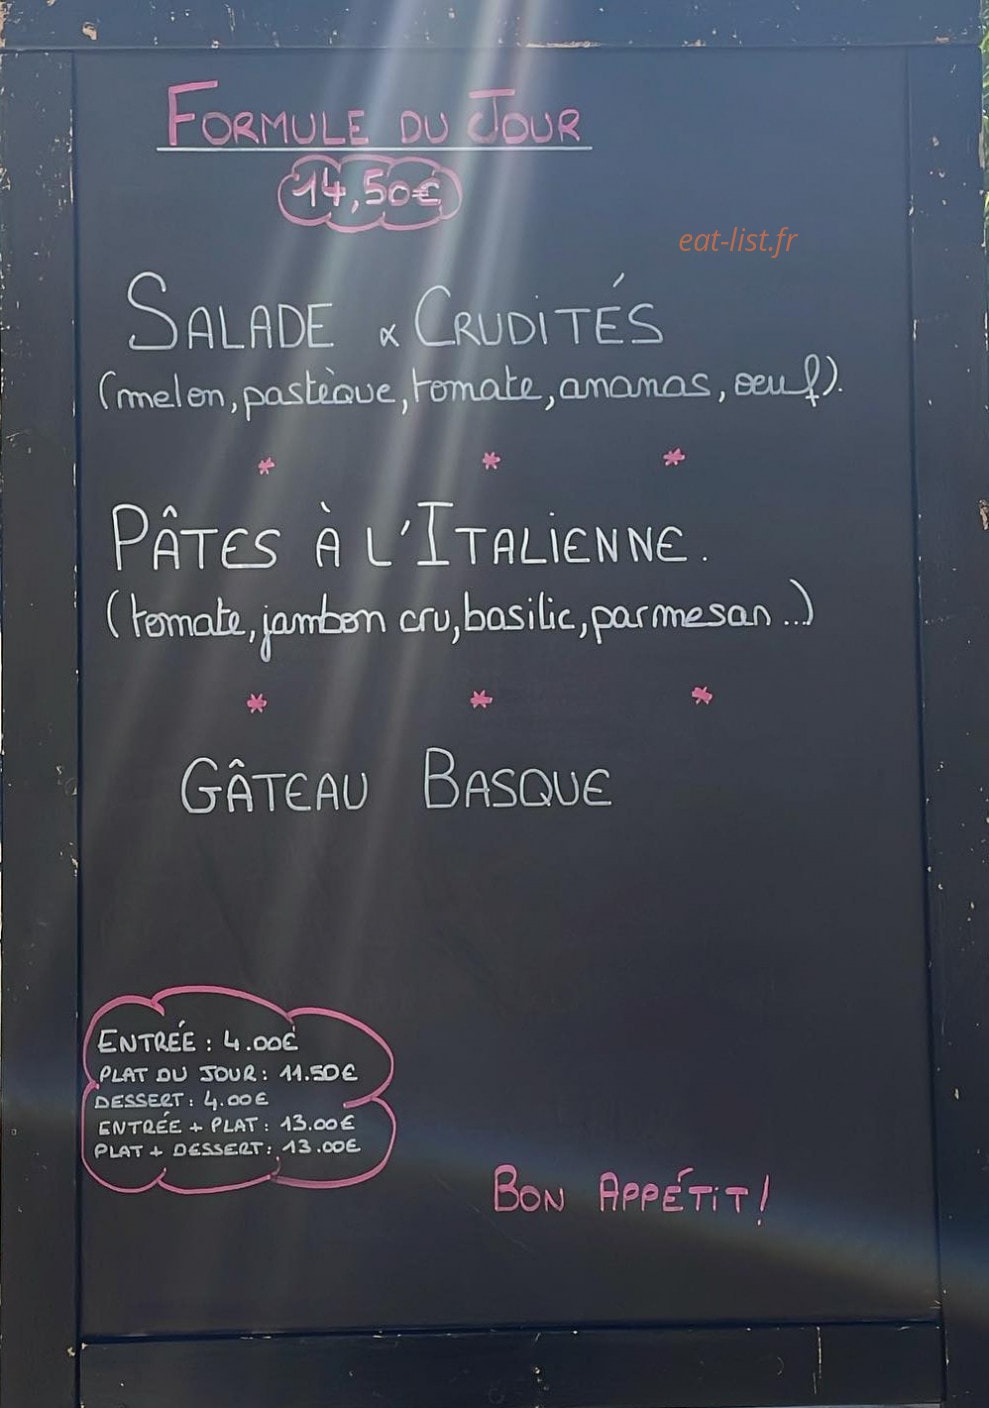 FORMULE DU JOUR
14,50€
eat-list.fr
SALADE & CRUDITÉS
(melon, pastèque, tomate, ananas, oeuf).
* * *
PÂTES À L'ITALIENNE.
(tomate, jambon cru, basilic, parmesan...)
* * *
GÂTEAU BASQUE
ENTRÉE : 4.00€
PLAT DU JOUR : 11.50€
DESSERT : 4.00€
ENTRÉE + PLAT : 13.00€
PLAT + DESSERT : 13.00€
BON APPÉTIT !